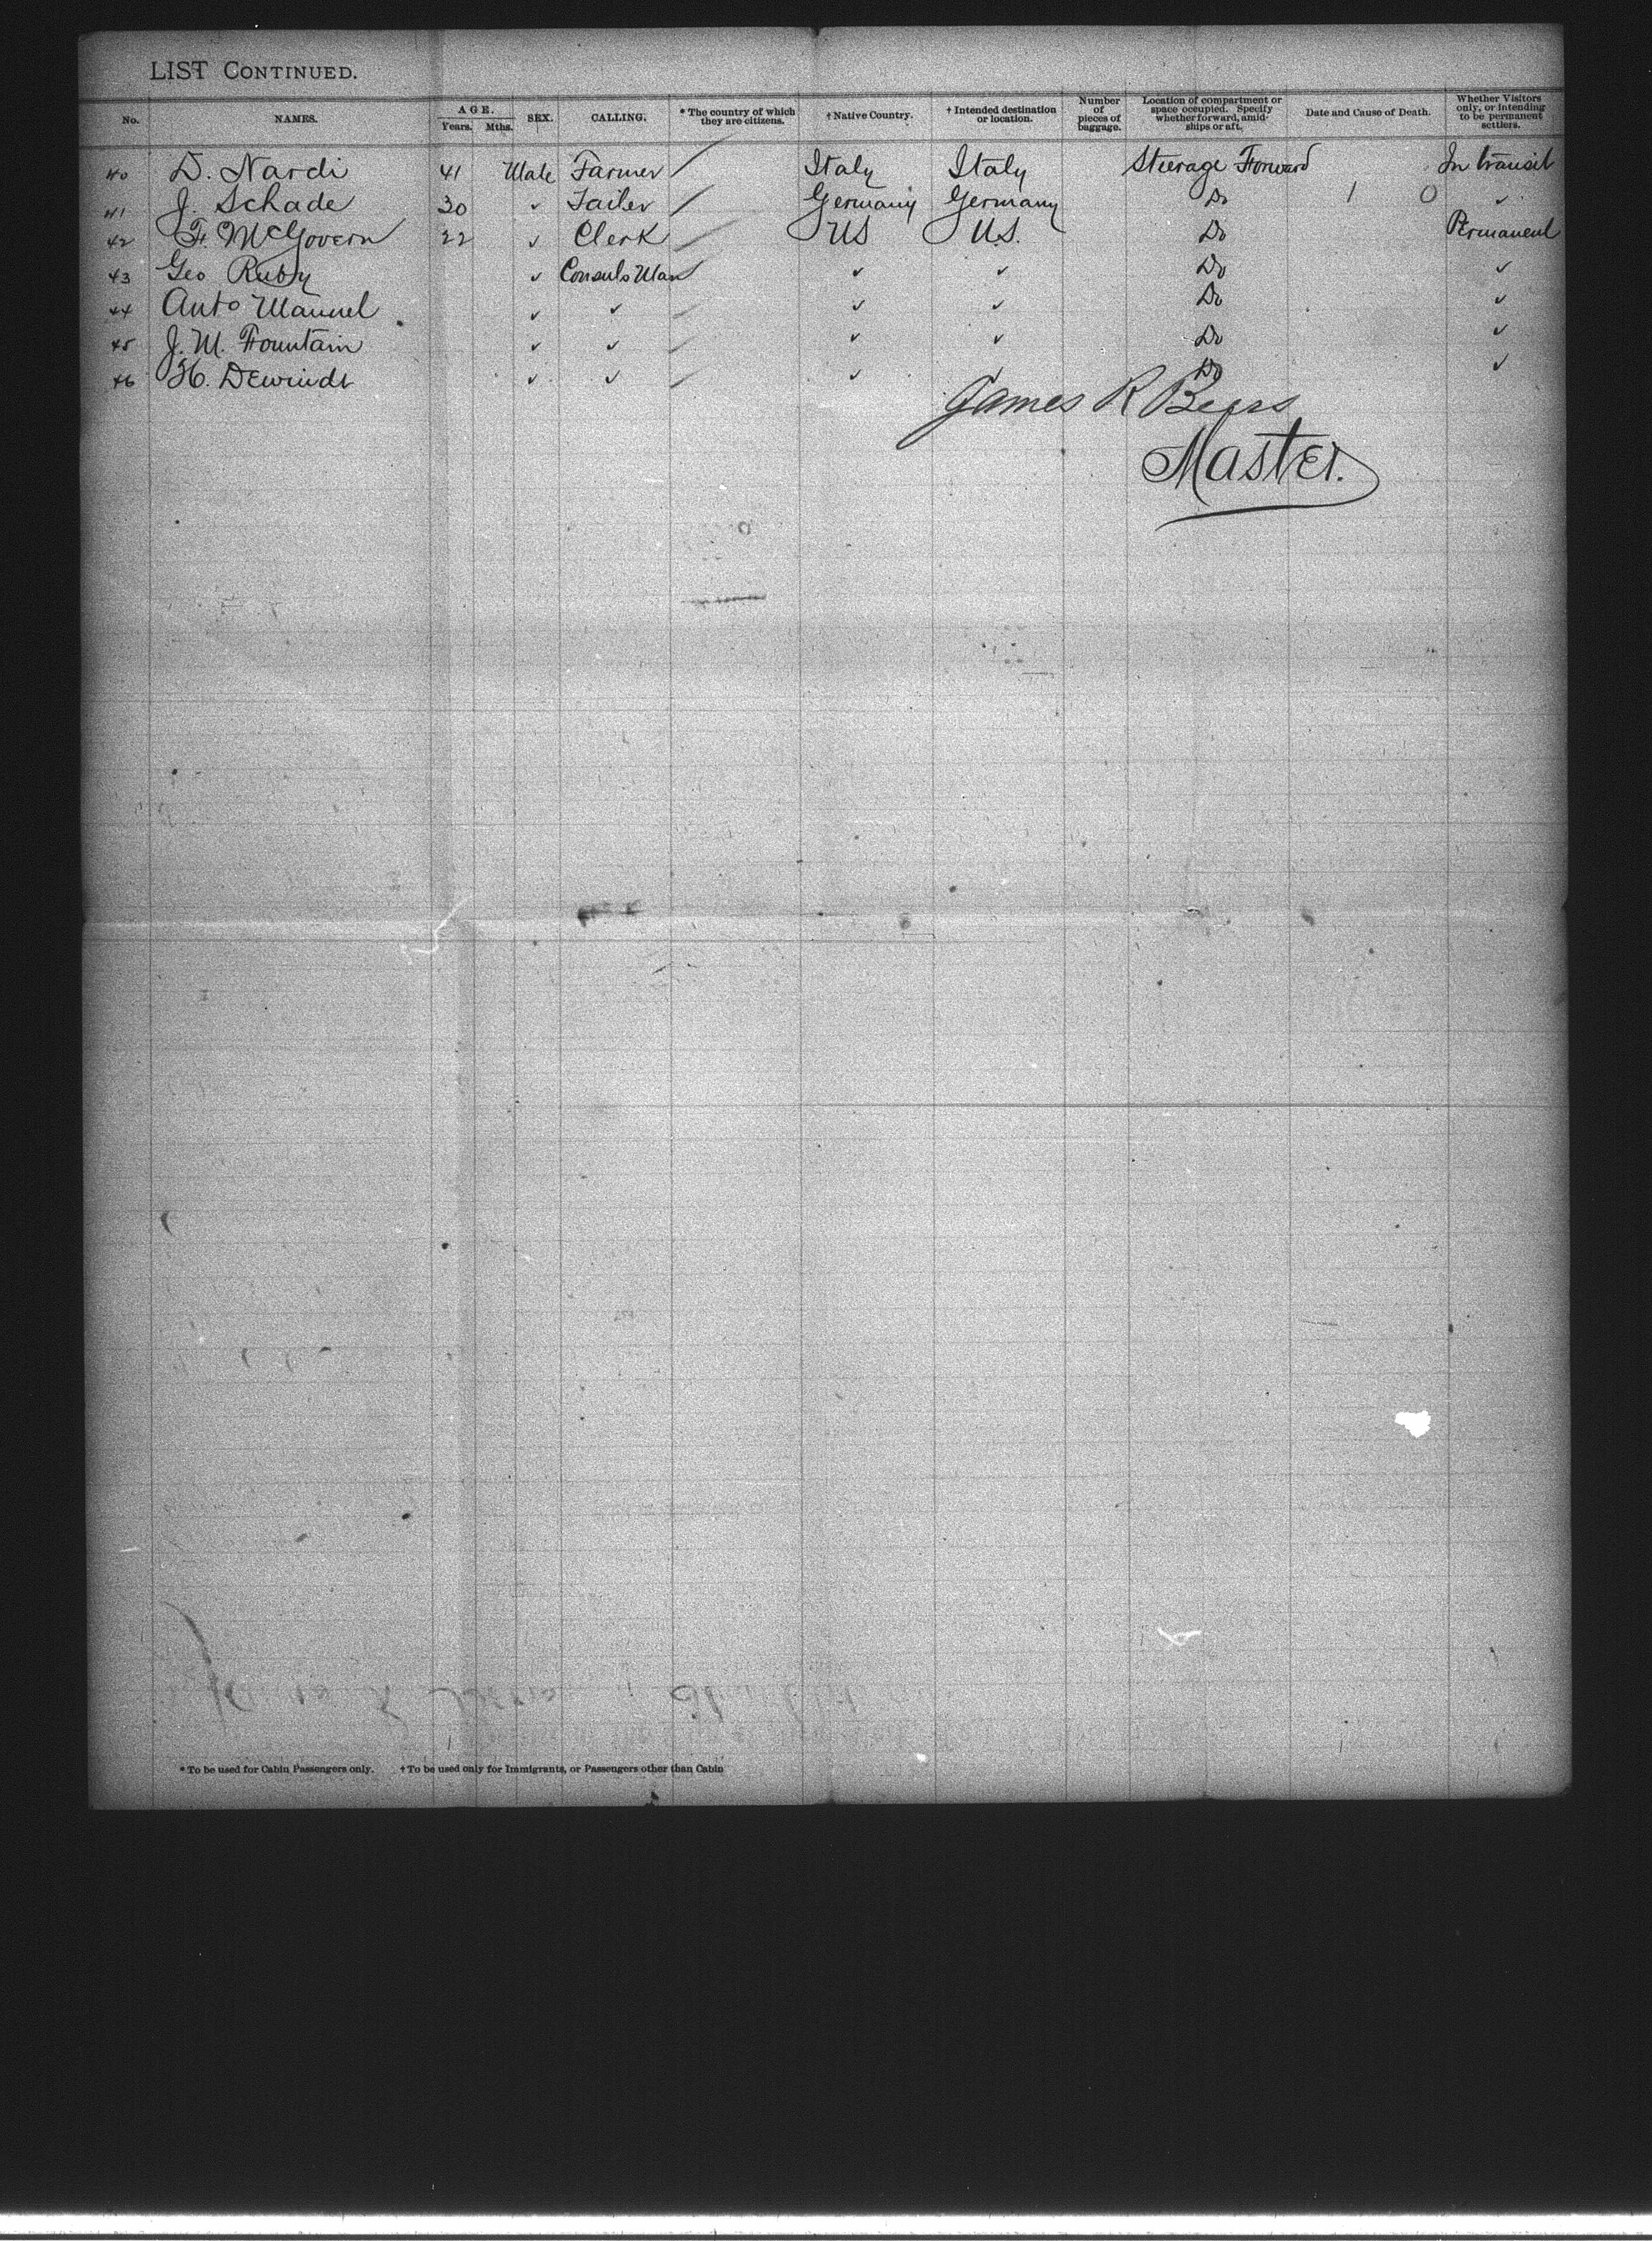 LIST CONTINUED.
No. NAMES. AGE. Years. Mths. SEX. CALLING. * The country of which they are citizens. † Native Country. † Intended destination or location. Number of pieces of baggage. Location of compartment or space occupied. Specify whether forward, amidships or aft. Date and Cause of Death. Whether Visitors only, or intending to be permanent settlers.
40 D. Nardi 41 Male Farmer / Italy Italy Steerage Forward In transit
41 J. Schade 30 ✓ Tailer / Germany Germany Do 1 0 ✓
42 F. McGovern 22 ✓ Clerk / US U.S. Do Permanent
43 Geo Ruby ✓ Consuls Man / ✓ ✓ Do ✓
44 Anto Manuel ✓ ✓ / ✓ ✓ Do ✓
45 J. M. Fountain ✓ ✓ / ✓ ✓ Do ✓
46 H. Dewindt ✓ ✓ / ✓ ✓ Do ✓
James R Beers
Master.
* To be used for Cabin Passengers only. † To be used only for Immigrants, or Passengers other than Cabin